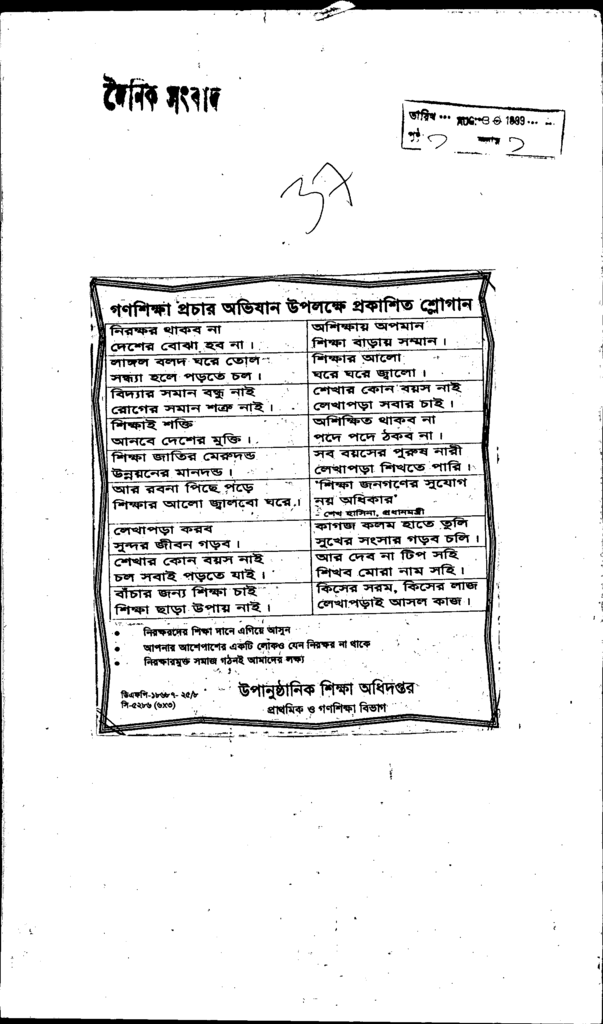 দৈনিক সংবাদ
তারিখ ... AUG. 1999 ...
পৃষ্ঠা
৩৭
গণশিক্ষা প্রচার অভিযান উপলক্ষে প্রকাশিত শ্লোগান
নিরক্ষর থাকব না
দেশের বোঝা হব না।
অশিক্ষায় অপমান
শিক্ষা বাড়ায় সম্মান।
লাঙ্গল বলদ ঘরে তোল
সন্ধ্যা হলে পড়তে চল।
শিক্ষার আলো
ঘরে ঘরে জ্বালো।
বিদ্যার সমান বন্ধু নাই
রোগের সমান শত্রু নাই।
শেখার কোন বয়স নাই
লেখাপড়া সবার চাই।
শিক্ষাই শক্তি
আনবে দেশের মুক্তি।
অশিক্ষিত থাকব না
পদে পদে ঠকব না।
শিক্ষা জাতির মেরুদন্ড
উন্নয়নের মানদন্ড।
সব বয়সের পুরুষ নারী
লেখাপড়া শিখতে পারি।
আর রবনা পিছে পড়ে
শিক্ষার আলো জ্বালবো ঘরে।
'শিক্ষা জনগণের সুযোগ
নয় অধিকার'
শেখ হাসিনা, প্রধানমন্ত্রী
লেখাপড়া করব
সুন্দর জীবন গড়ব।
কাগজ কলম হাতে তুলি
সুখের সংসার গড়ব চলি।
শেখার কোন বয়স নাই
চল সবাই পড়তে যাই।
আর দেব না টিপ সহি
শিখব মোরা নাম সহি।
বাঁচার জন্য শিক্ষা চাই
শিক্ষা ছাড়া উপায় নাই।
কিসের সরম, কিসের লাজ
লেখাপড়াই আসল কাজ।
• নিরক্ষরদের শিক্ষা দানে এগিয়ে আসুন
• আপনার আশেপাশের একটি লোকও যেন নিরক্ষর না থাকে
• নিরক্ষারমুক্ত সমাজ গঠনই আমাদের লক্ষ্য
উপানুষ্ঠানিক শিক্ষা অধিদপ্তর
প্রাথমিক ও গণশিক্ষা বিভাগ
ডিএফপি-১৮৬৮৭- ২৫/৮
সি-৫২৮৬ (৬x৩)